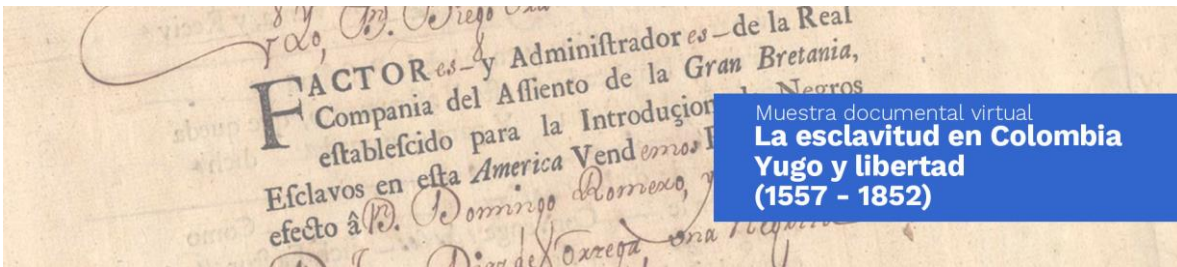 y Do, Dn. Diego
FACTORes - y Adminiſtradores - de la Real
Compania del Aſſiento de la Gran Bretania,
eſtableſcido para la Introduçion de Negros
Eſclavos en eſta America Vendemos
efecto â Dn. Domingo Romero, y
una Negrita
Muestra documental virtual
La esclavitud en Colombia
Yugo y libertad
(1557 - 1852)